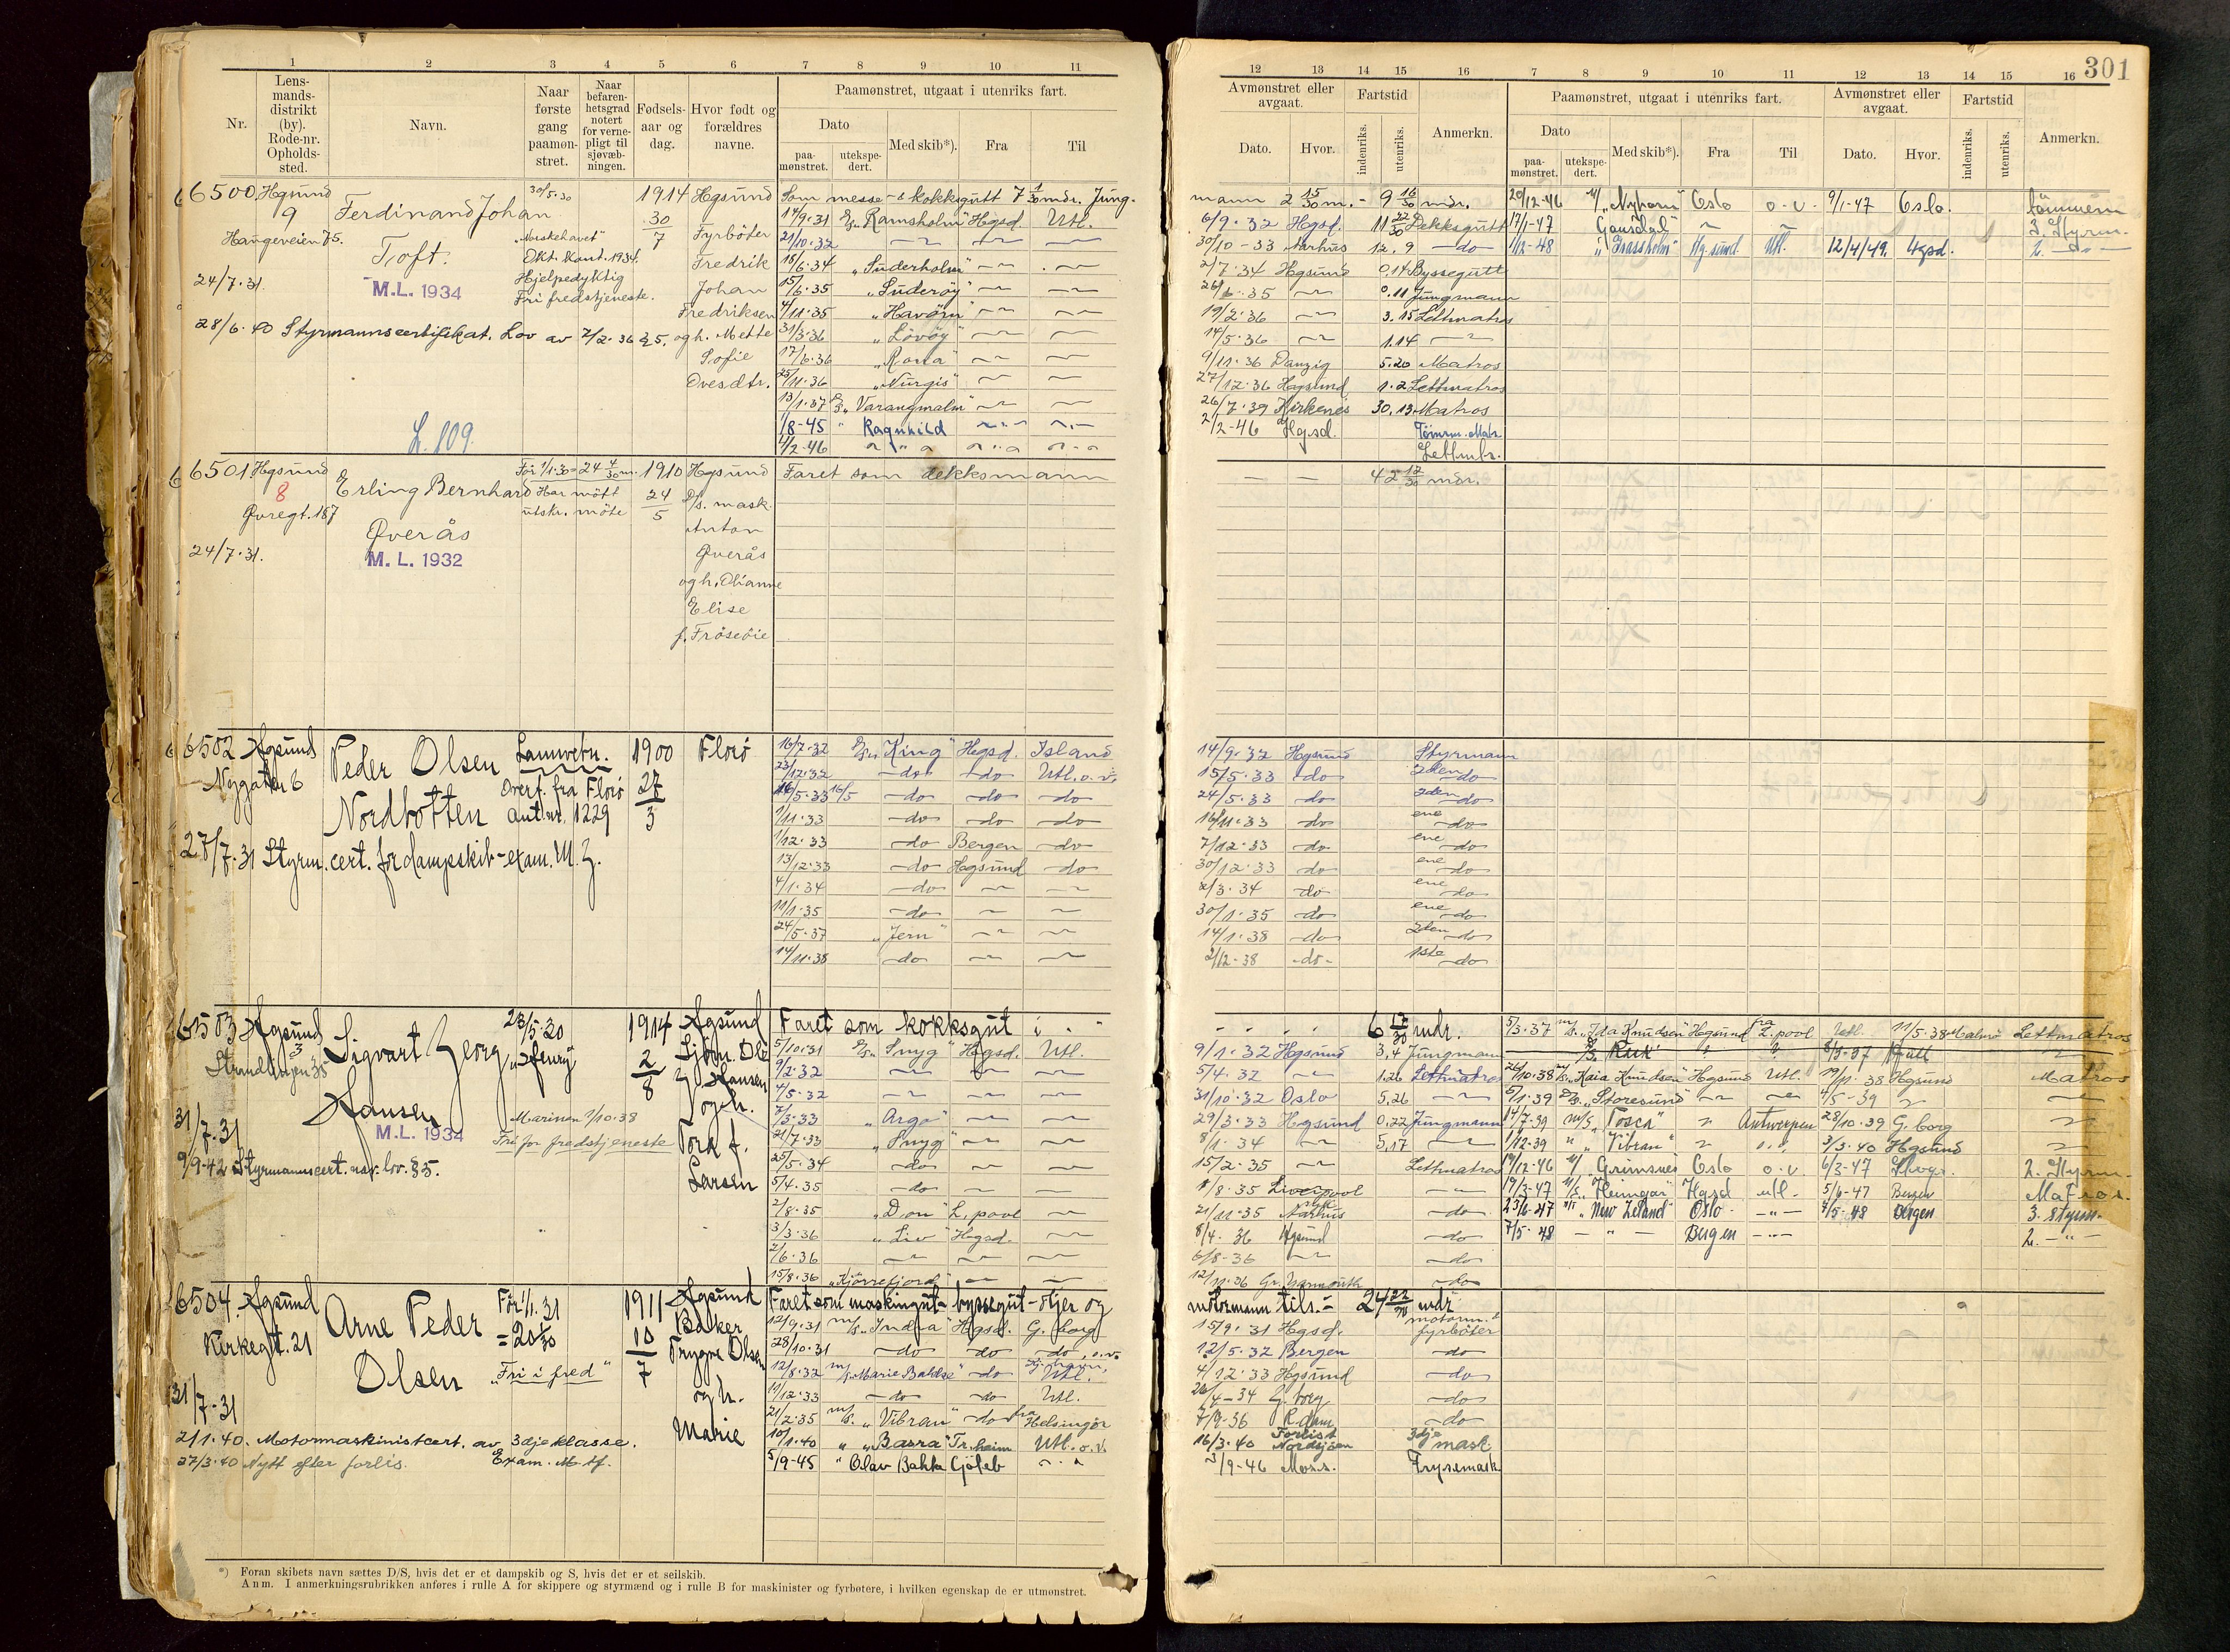 301
1 2 3 4 5 6 7 8 9 10 11
Nr.
Lens-
mands-
distrikt
(by).
Rode-nr.
Opholds-
sted.
Navn.
Naar
første
gang
paamøn-
stret.
Naar
befaren-
hetsgrad
notert
for verne-
pligt til
sjøvæb-
ningen.
Fødsels-
aar og
dag.
Hvor født og
forældres
navne.
Paamønstret, utgaat i utenriks fart.
Dato
paa-
mønstret.
utekspe-
dert.
Med skib*).
Fra
Til
12 13 14 15 16 7 8 9 10 11 12 13 14 15 16
Avmønstret eller
avgaat.
Dato.
Hvor.
Fartstid
indenriks.
utenriks.
Anmerkn.
Paamønstret, utgaat i utenriks fart.
Dato
paa-
mønstret.
utekspe-
dert.
Med skib*).
Fra
Til
Avmønstret eller
avgaat.
Dato.
Hvor.
Fartstid
indenriks.
utenriks.
Anmerkn.
6500 Hgsund
9
Haugeveien 75.
24/7.31
Ferdinand Johan
Toft.
M.L. 1934
30/5.30
"Norskehavet"
Okt. kont. 1934.
Hjelpedyktig
Fri fredstjeneste.
28/6.40 Styrmannscertifikat. Lov av 7/2.36 §5.
L. 809.
1914
30
7
Hgsund
Fyrbøter
Fredrik
Johan
Fredriksen
og h. Mette
Sofie
Ovesdtr.
Som messe- & kokksgutt 7 1/30 mdr. Jung-
14/9.31 D/S "Ramsholm" Hgsd. Utl.
21/10.32
18/6.34 "Suderholm"
15/6.35 "Suderøy"
4/11.35 "Havørn"
31/3.36 "Løvøy"
17/6.36 "Rona"
25/11.36 "Nurgis"
13/1.37 D/S "Varangmalm"
1/8-45 Ragnhild
4/2-46
mann 2 15/30 m. - 9 16/30 mdr.
6/9.32 Hgsd. 11 22/30 Dekksgutt
30/10-33 Aarhus 12.9 do
2/7.34 Hgsund 0.14 Byssegutt
26/6.35 0.11 Jungmann
19/2.36 3.15 Lettmatros
14/5.36 1.14
9/11.36 Danzig 5.20 Matros
27/12.36 Hgsund 1.2 Lettmatros
26/7.39 Kirkenes 30.13 Matros
2/2-46 Hgsd. Tømrm. Matr.
Lettmtr.
20/12-46 M/ "Nyhorn" Oslo o.v. 9/1-47 Oslo. tømmerm
17/1-47 Gausdal 3. Styrm.
1/12-48 "Grassholm" Hg.sund. Utl. 12/4/49. Hgsd. 2. do
6501 Hgsund
8
Øvregt. 187
24/7.31.
Erling Bernhard
Øverås
M.L. 1932
Før 1/1.30 = 24 4/30 m.
Har møtt
utskr. møte
1910
24
5
Hgsund
D/s. mask.
Anton
Øverås
og h. Olianne
Elise
f. Frøseøie
Faret som dekksmann
42 17/30 mdr.
6502 Hgsund
Nygaten 6
Peder Olsen
Nordbotten
Landvern.
Overf. fra Florø
ant. nr. 1229
27/7.31 Styrm. cert. for dampskib-exam. M. Z.
1900
27
3
Florø
16/7.32 D/S "King" Hgsd. Island
23/12.32 do do Utl. o.v.
16/5.33 16/5 do do do
1/11.33 do do do
1/12.33 do Bergen do
13/12.33 do Hagsund do
4/1.34 do
11/1.35 do
24/5.37 "Jern"
14/11.38 do
14/9.32 Hgsund Styrmann
15/5.33 do 2den do
24/5.33 do 2den do
16/11.33 do ene do
7/12.33 do ene do
30/12.33 do ene do
2/3.34 do ene do
30/1.35 do ene do
14/1.38 do 2den do
2/12-38 do 1ste do
6503 Hgsund
3
Strandlinjen 35
31/7.31
Sigvart Georg
Hansen
M.L. 1934
23/5.30
"Henry"
Marinen 1/10.38
Fri for fredstjeneste
9/9-42 Styrmannscert. nav. lov. § 5.
1914
2
8
Hgsund
Sjøm. Ole
Hansen
og h.
Tora f.
Larsen
Faret som kokksgut i
5/10.31 D/S "Snyg" Hgsd. Utl.
9/2.32
4/5.32
7/3.33 "Argo"
21/7.33 "Snyg"
25/5.34 do
5/4.35 do
2/8.35 "Don" L. pool
3/3.36 "Liv" Hgsd.
2/6.36
15/8.36 "Kjørrefjord"
6 17/30 mdr.
9/1.32 Hgsund 3,4 Jungmann
5/4.32 1.26 Lettmatros
31/10.32 Oslo 5,26
29/3.33 Hgsund 0,22 Jungmann
8/1.34 5,17
15/2.35 Lettmatros
1/8.35 Liverpool
21/11.35 Aarhus do
8/4.36 Hgsund do
6/8-36 do
12/11.36 Gr. Yarmouth do
5/3.37 M/S "Ida Knudsen" Hgsund fra L.pool Utl. 11/5.38 Malmö Lettmatros
26/10.38 M/S "Kaia Knudsen" Hgsund Utl. 19/11.38 Hgsund Matros
5/1.39 D/S "Storesund" 4/5-39
14/7.39 M/S "Tosca" Antwerpen 28/10.39 G. borg
1/12.39 "Vibran" o.v. 3/3.40 Hgsund
19/12-46 M/ "Grimsnes" Oslo o.v. 6/3-47 2. Styrm.
19/3-47 M/S "Heimgar" Hgsd utl. 5/6-47 Bergen Matros.
23/6-47 M/S "New Zeland" Oslo 7/5-48 Bergen 3. styrm.
7/5-48 Bergen 2.
6504 Hgsund
Kirkegt. 21
31/7.31
Arne Peder
Olsen
Før 1/1.31
"Fri i fred"
1911
10
7
Hgsund
Baker
Trygve Olsen
og h.
Marie
2/1.40. Motormaskinistcert. av 3dje klasse.
27/3.40 Nytt efter forlis. Exam. M. tf.
Faret som maskingut - byssegut - oljer og
12/9.31 M/S "Indra" Hgsd. G. borg
28/10.31 do do do o.v.
12/8.32 M/S "Marie Bakke" do Utl.
11/12.33 do do Utl.
21/2.35 M/S "Vibran" do fra Helsingør
10/1.40 "Basra" Tr.heim Utl. o.v.
5/9-45 "Olav Bakke" Gøteb
motormann tils. = 24 22/30 mdr
15/9.31 Hgsd. motorm. & fyrbøter
12/5.32 Bergen do
4/12.33 Hgsund do
24/4-34 G. borg do
7/9-36 R.dam do
16/3.40 Forlist Nordsjøen 3dje mask
3/9-46 Moss. Frysemask
*) Foran skibets navn sættes D/S, hvis det er et dampskib og S, hvis det er et seilskib.
Anm. I anmerkningsrubrikken anføres i rulle A for skippere og styrmænd og i rulle B for maskinister og fyrbøtere, i hvilken egenskap de er utmønstret.